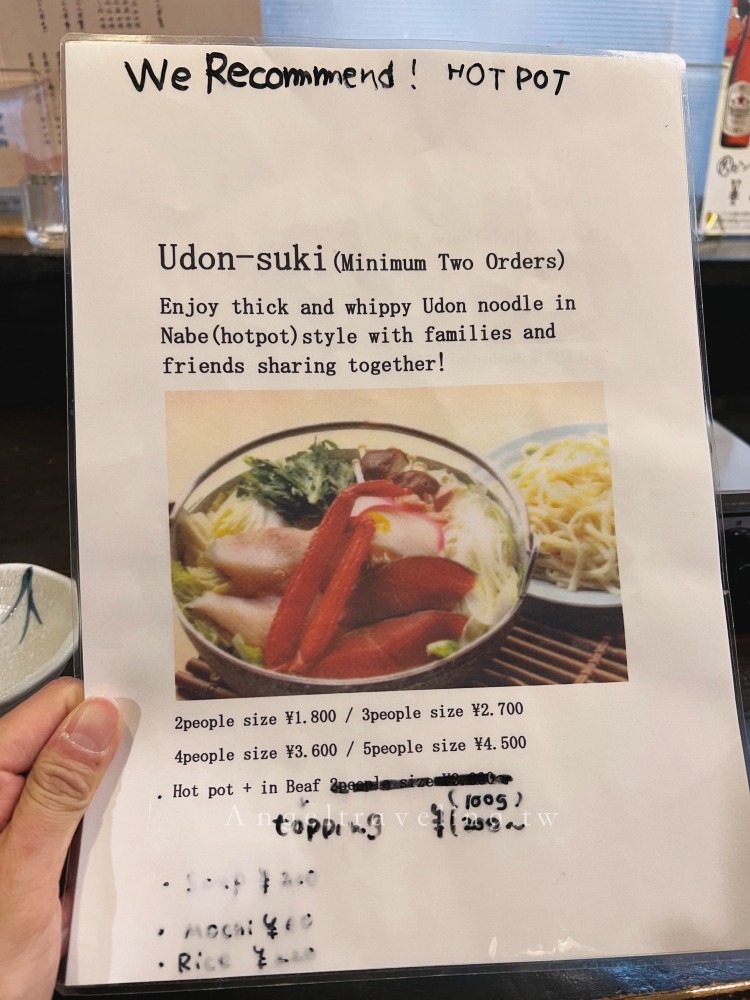 We Recommend! HOT POT
Udon-suki(Minimum Two Orders)
Enjoy thick and whippy Udon noodle in
Nabe(hotpot)style with families and
friends sharing together!
2people size ¥1.800 / 3people size ¥2.700
4people size ¥3.600 / 5people size ¥4.500
. Hot pot + in Beaf
(100g)
topping
Angeltraveling.tw
· Soup ¥
· Mochi ¥
· Rice ¥